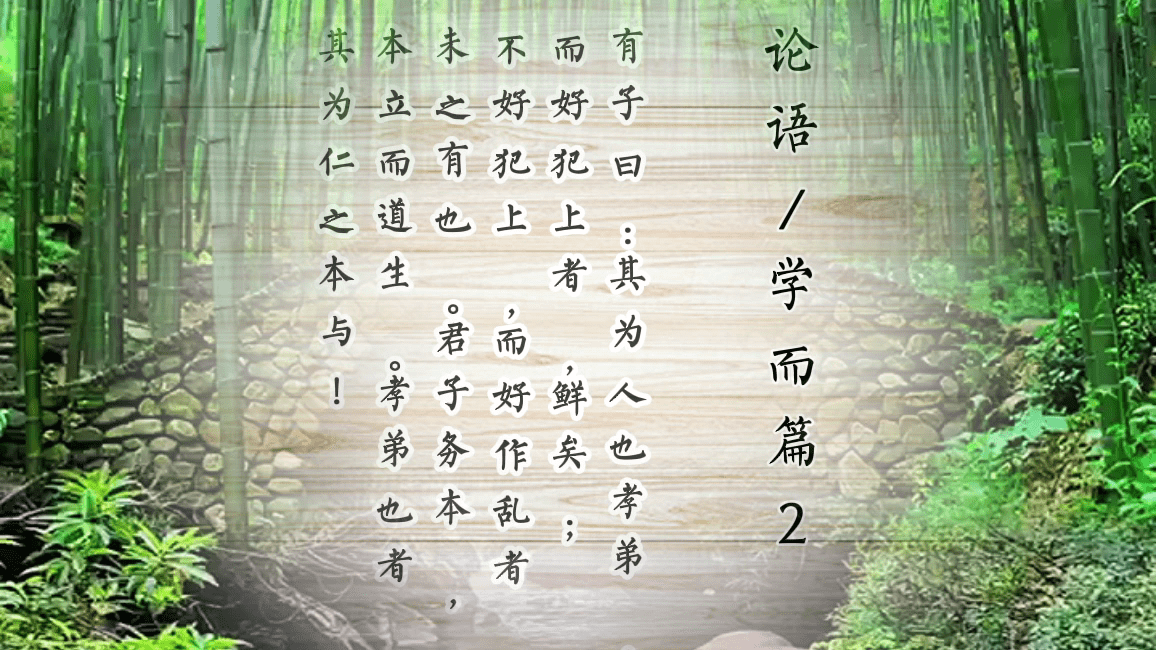 论语/学而篇2
有子曰:其为人也孝弟
而好犯上者,鲜矣;
不好犯上,而好作乱者
未之有也。君子务本,
本立而道生。孝弟也者
其为仁之本与!